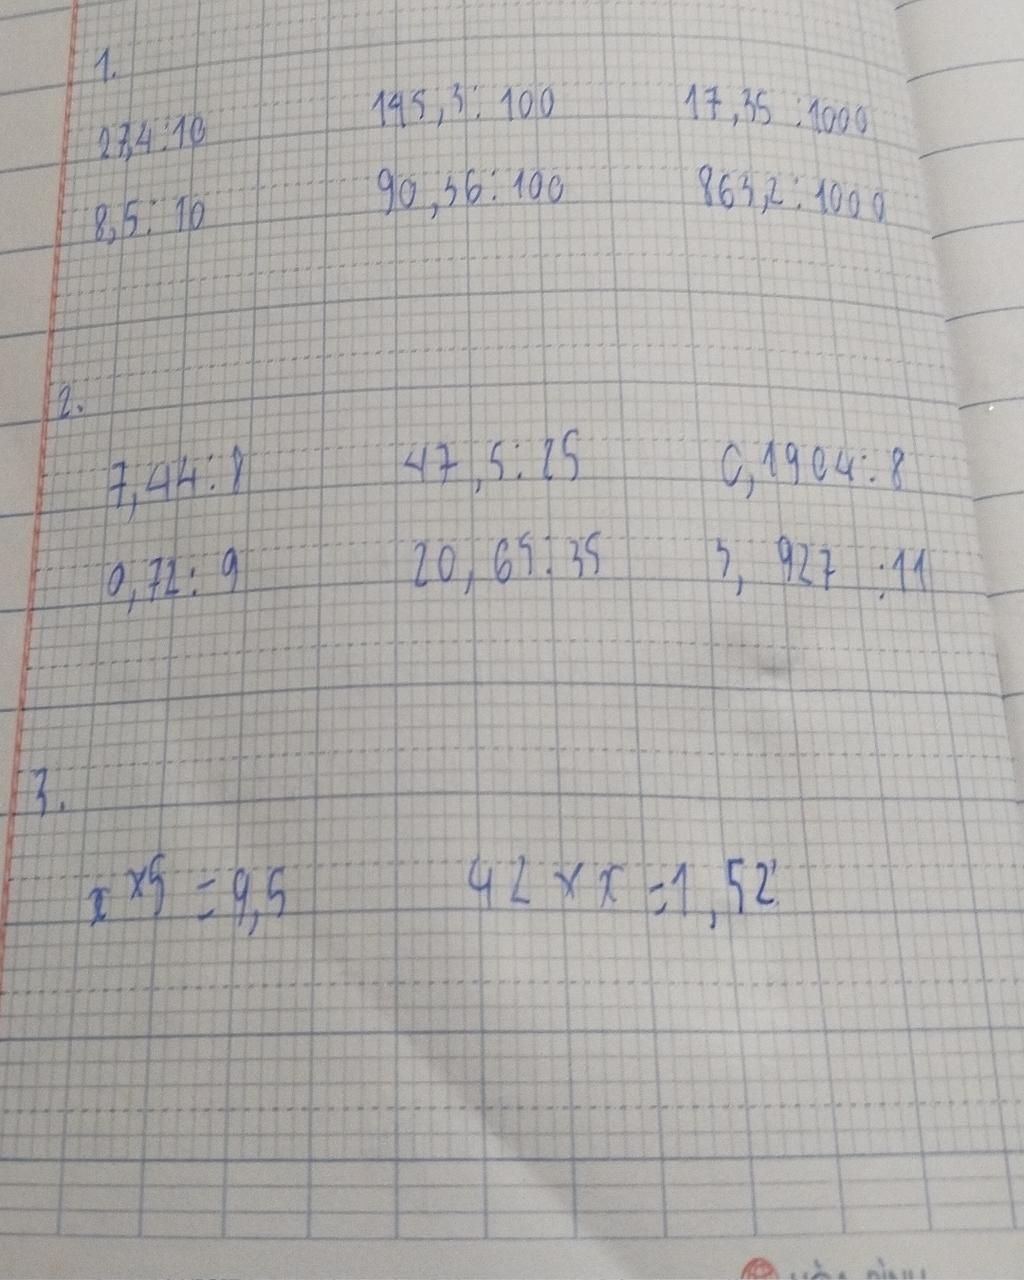 1.
27,4:10 145,3: 100 17,35 :1000
8,5: 10 90,36: 100 863,2: 1000
2.
7,44: 8 47,5: 25 0,1904: 8
0,72: 9 20,65: 35 3, 927 :11
3.
x x5 = 9,5 42 x x =1,52